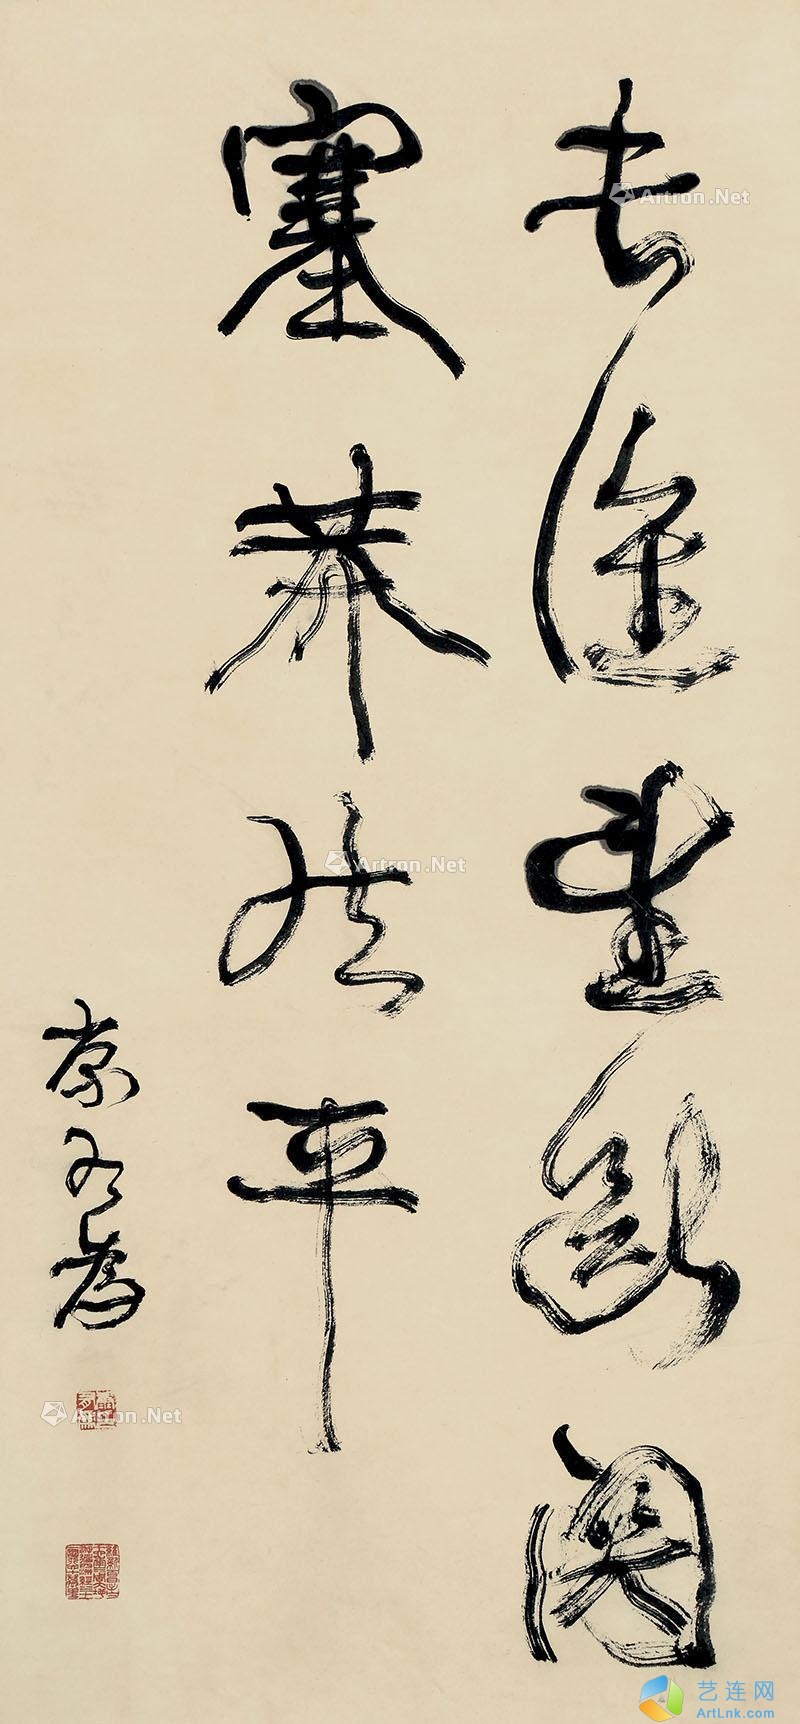 長淮望斷關
塞莽然平
康有為
Artron.Net
Artron.Net
Artron.Net
艺连网
ArtLnk.com